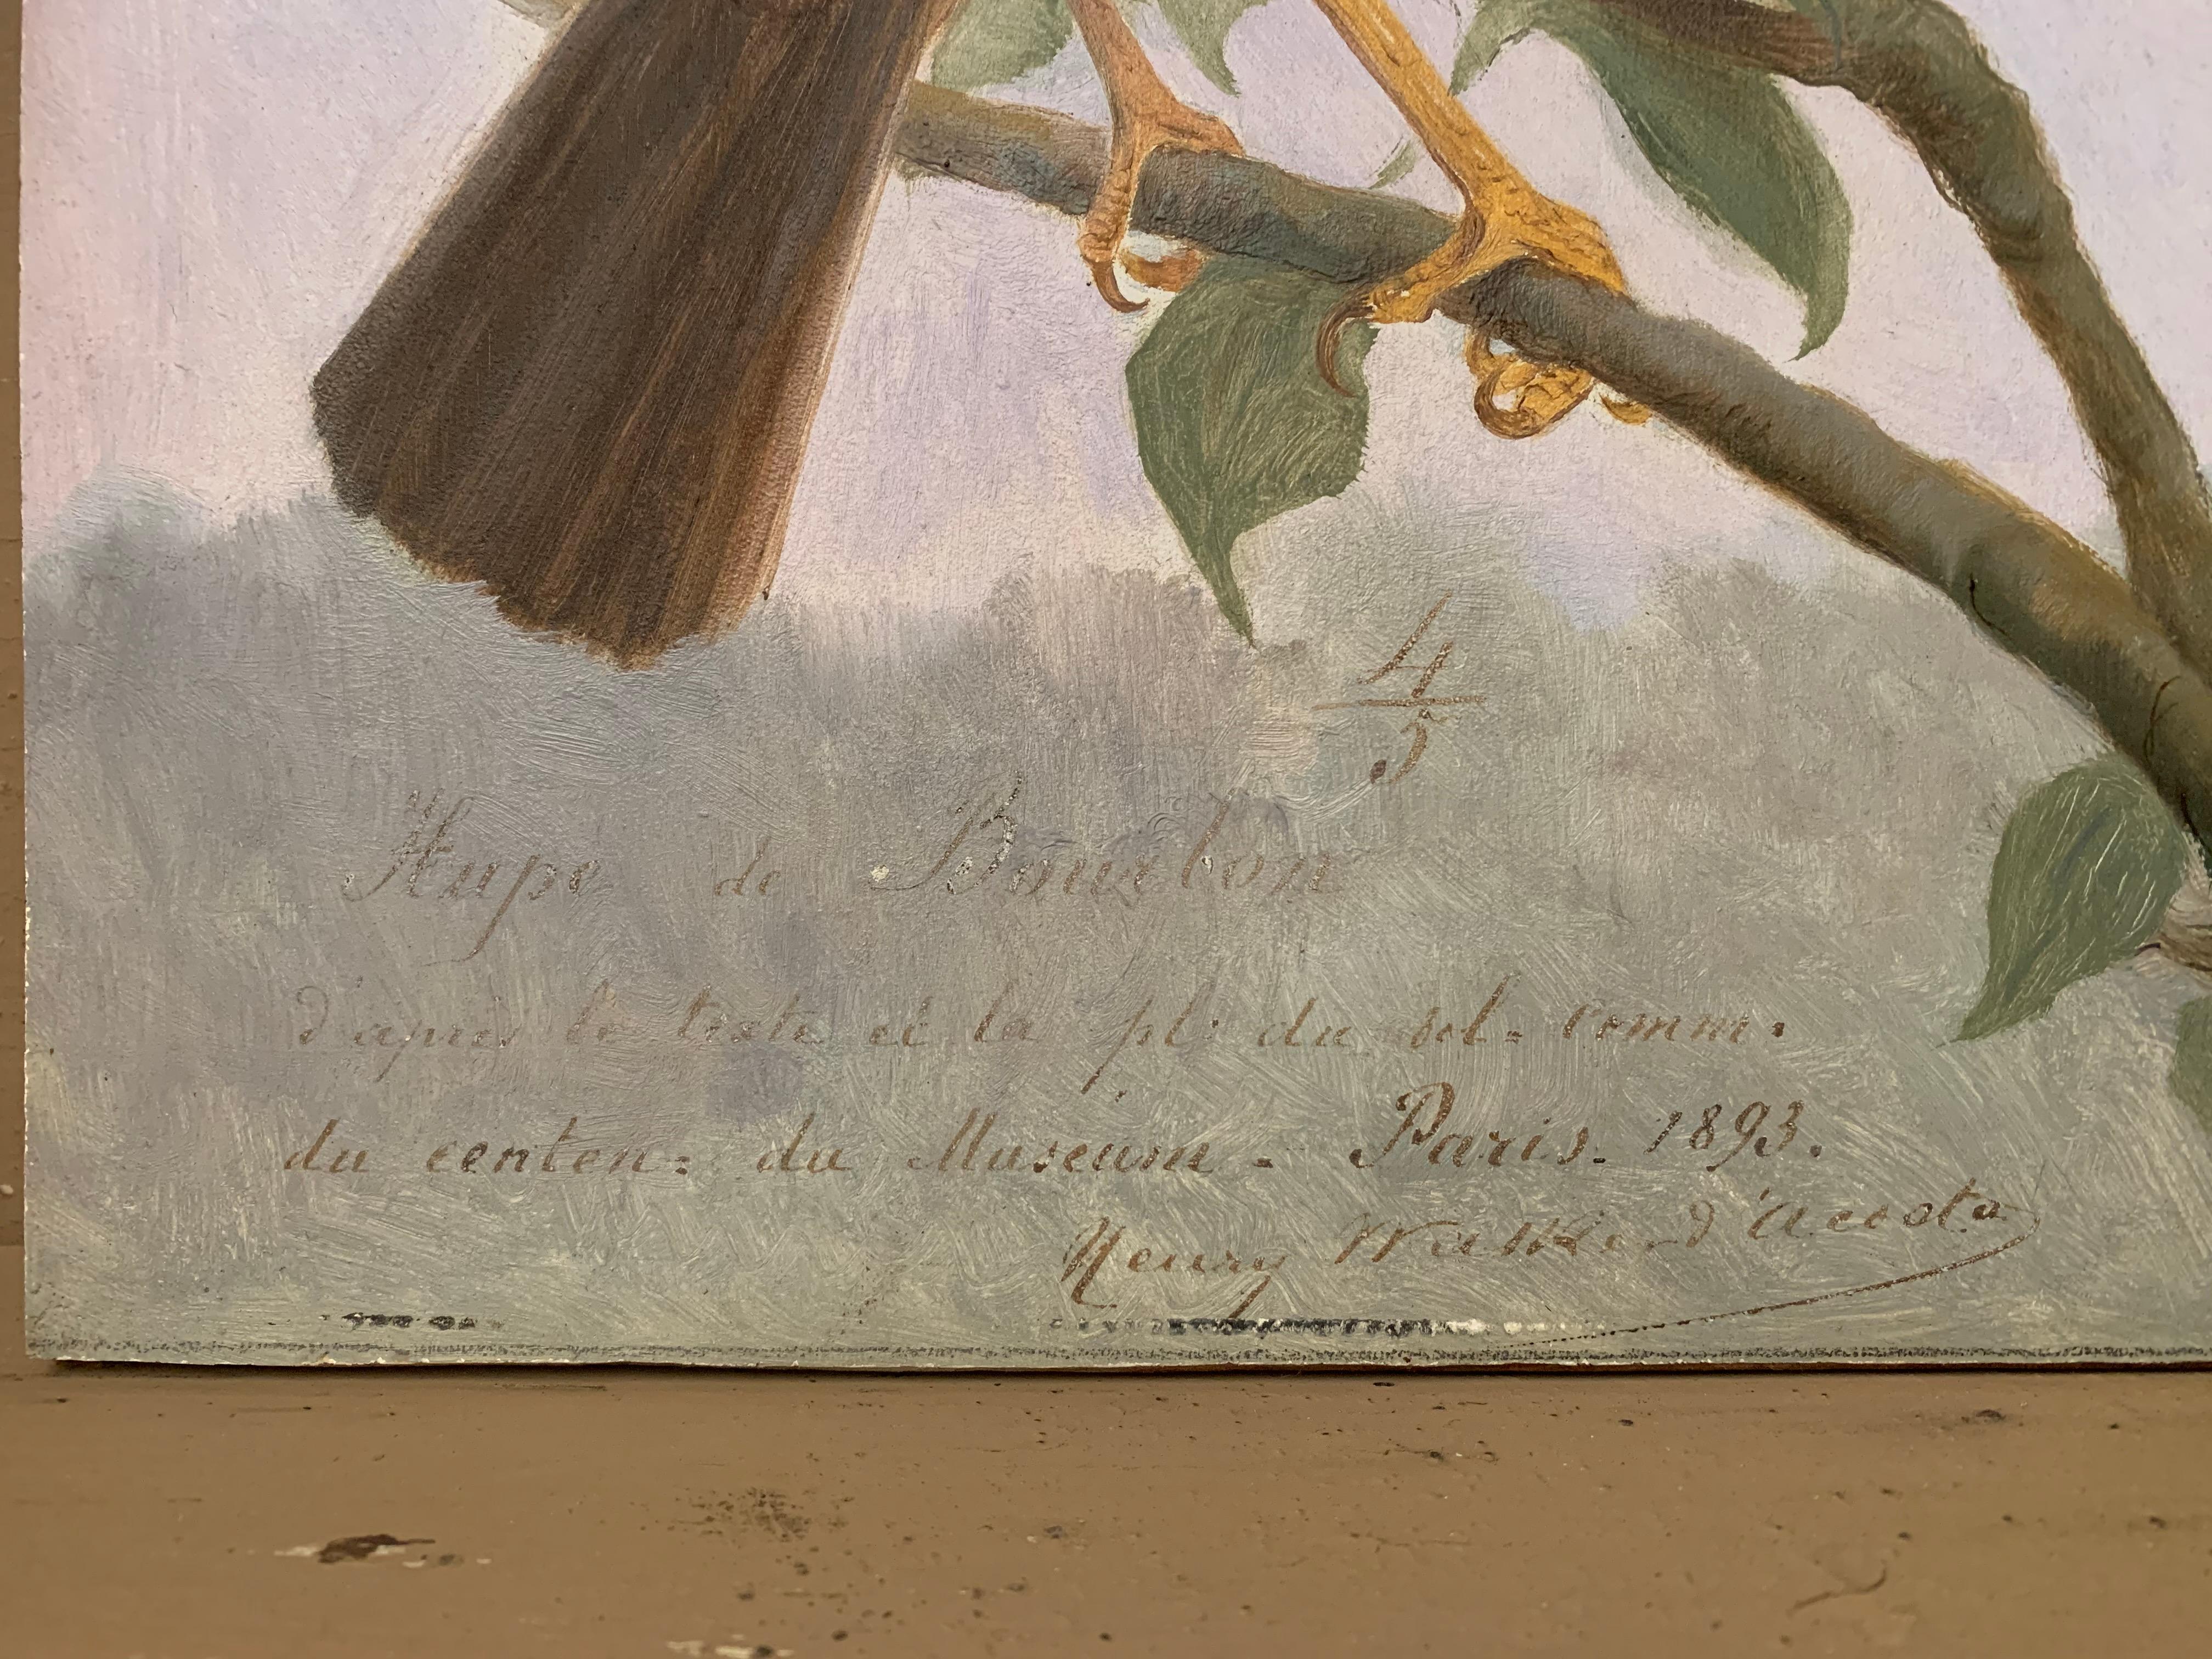 4/5
Hupe de Bourbon
d'après le texte et la pl. du vol= comm.
du centen= du Museum - Paris. 1893.
Henry Walker d'Acosta